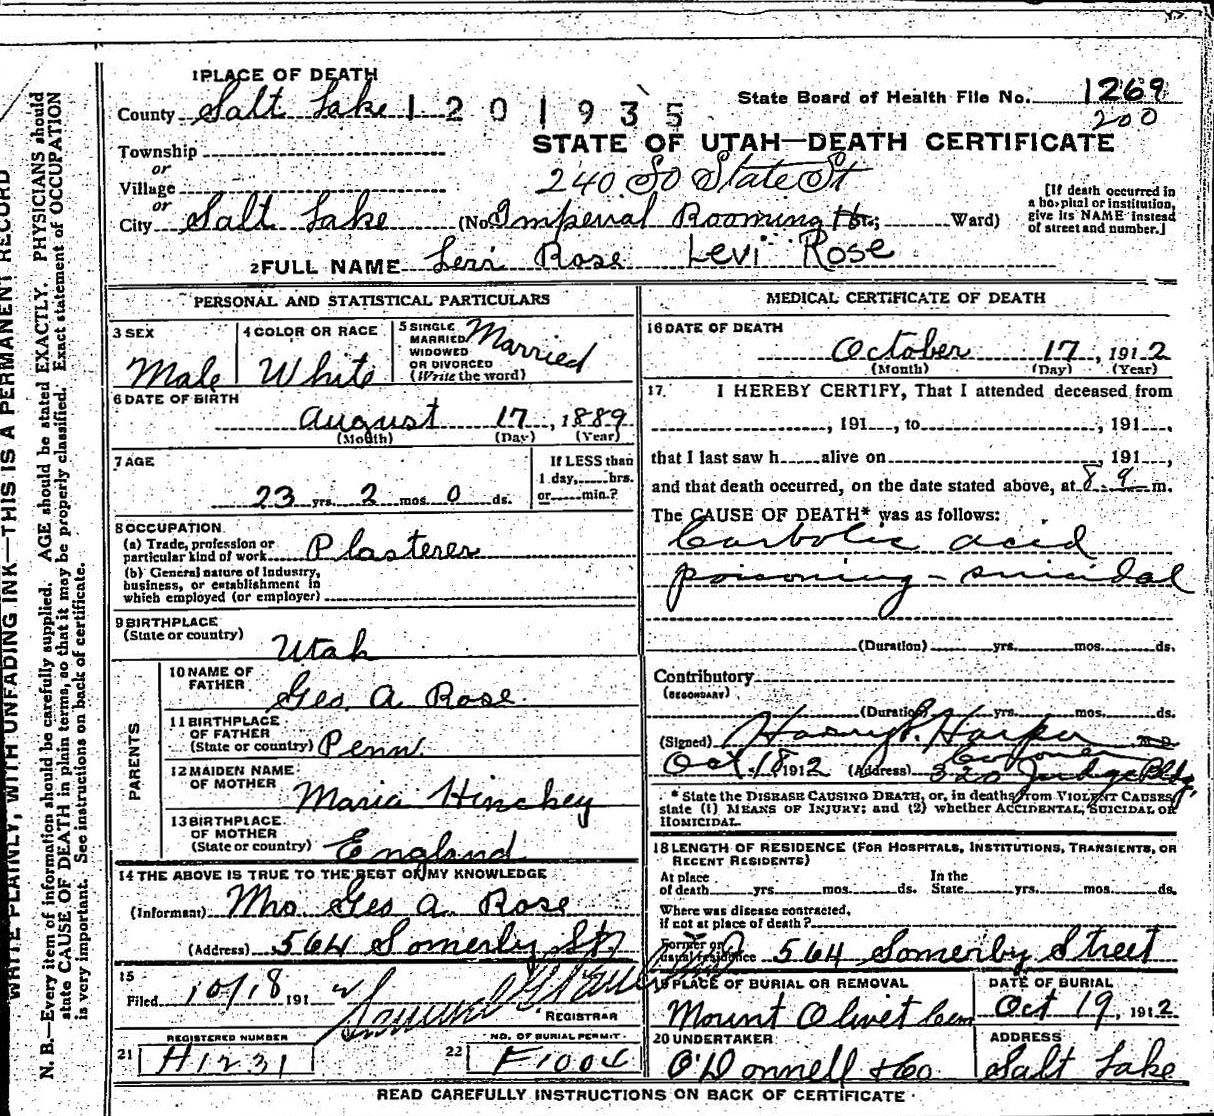 WRITE PLAINLY, WITH UNFADING INK—THIS IS A PERMANENT RECORD
N. B.—Every item of information should be carefully supplied. AGE should be stated EXACTLY. PHYSICIANS should
state CAUSE OF DEATH in plain terms, so that it may be properly classified. Exact statement of OCCUPATION
is very important. See instructions on back of certificate.
1 PLACE OF DEATH
County Salt Lake 1 2 0 1 9 3 5
State Board of Health File No. 1269
200
Township
STATE OF UTAH—DEATH CERTIFICATE
or
Village
240 So State St
or
City Salt Lake (No. Imperial Rooming Ho St.; Ward)
[If death occurred in
a hospital or institution,
give its NAME instead
of street and number.]
2 FULL NAME Levi Rose Levi Rose
PERSONAL AND STATISTICAL PARTICULARS
3 SEX
Male
4 COLOR OR RACE
White
5 SINGLE
MARRIED
WIDOWED
OR DIVORCED
(Write the word)
Married
6 DATE OF BIRTH
August 17, 1889
(Month) (Day) (Year)
7 AGE
23 yrs. 2 mos. 0 ds.
If LESS than
1 day, hrs.
or min.?
8 OCCUPATION
(a) Trade, profession or
particular kind of work Plasterer
(b) General nature of industry,
business, or establishment in
which employed (or employer)
9 BIRTHPLACE
(State or country)
Utah
PARENTS
10 NAME OF
FATHER
Geo. A Rose.
11 BIRTHPLACE
OF FATHER
(State or country) Penn.
12 MAIDEN NAME
OF MOTHER
Maria Hinchey
13 BIRTHPLACE
OF MOTHER
(State or country) England
14 THE ABOVE IS TRUE TO THE BEST OF MY KNOWLEDGE
(Informant) Mrs. Geo A. Rose
(Address) 564 Somerby St.
15
Filed 10/18 1912
REGISTRAR
REGISTERED NUMBER
21 H1231
NO. OF BURIAL PERMIT
22 F1004
MEDICAL CERTIFICATE OF DEATH
16 DATE OF DEATH
October 17, 1912
(Month) (Day) (Year)
17. I HEREBY CERTIFY, That I attended deceased from
, 191 , to , 191 ,
that I last saw h alive on , 191 ,
and that death occurred, on the date stated above, at 8-9 m.
The CAUSE OF DEATH* was as follows:
Carbolic acid
poisoning - suicidal
(Duration) yrs. mos. ds.
Contributory
(SECONDARY)
(Duration) yrs. mos. ds.
(Signed) Harry S. Harper M D
Coroner
Oct. 18 1912 (Address) 320 Judge Bldg.
* State the DISEASE CAUSING DEATH, or, in deaths from VIOLENT CAUSES,
state (1) MEANS OF INJURY; and (2) whether ACCIDENTAL, SUICIDAL OR
HOMICIDAL.
18 LENGTH OF RESIDENCE (FOR HOSPITALS, INSTITUTIONS, TRANSIENTS, OR
RECENT RESIDENTS)
At place
of death yrs. mos. ds.
In the
State yrs. mos. ds.
Where was disease contracted,
if not at place of death?
Former or
usual residence 564 Somerby Street
19 PLACE OF BURIAL OR REMOVAL
Mount Olivet Cem
DATE OF BURIAL
Oct 19, 1912
20 UNDERTAKER
O'Donnell & Co.
ADDRESS
Salt Lake
READ CAREFULLY INSTRUCTIONS ON BACK OF CERTIFICATE